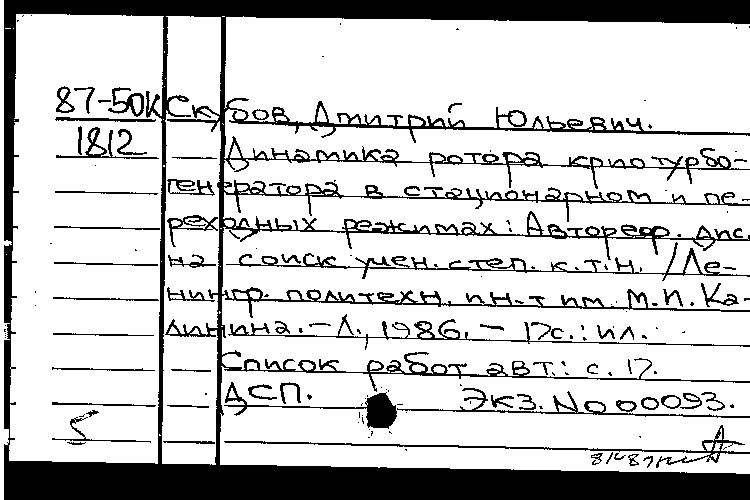 87-50К Скубов, Дмитрий Юльевич.
1812 Динамика ротора криотурбо-
генератора в стационарном и пе-
реходных режимах: Автореф. дис.
на соиск учен. степ. к.т.н. /Ле-
нингр. политехн. ин-т им. М.И. Ка-
линина. – Л., 1986. – 17с.: ил.
Список работ авт.: с. 17.
ДСП. Экз. No 00093.
5